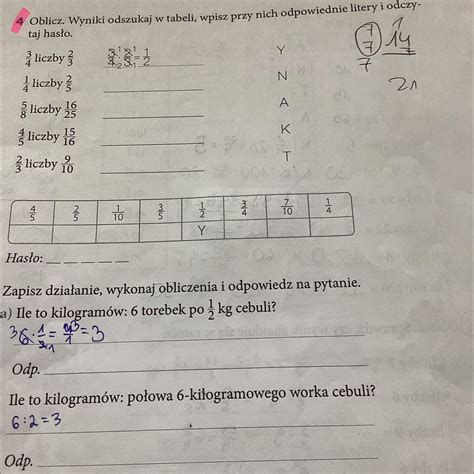 4 Oblicz. Wyniki odszukaj w tabeli, wpisz przy nich odpowiednie litery i odczy-
taj hasło.
3/4 liczby 2/3 3̶¹/4̶₂ · 2̶¹/3̶₁ = 1/2 Y
1/4 liczby 2/5 N
5/8 liczby 16/25 A
4/5 liczby 15/16 K
2/3 liczby 9/10 T
7
7
7
14
7
21
4/5 2/5 1/10 3/5 1/2 3/4 7/10 1/4
Y
Hasło: _ _ _ _ _
Zapisz działanie, wykonaj obliczenia i odpowiedz na pytanie.
a) Ile to kilogramów: 6 torebek po 1/2 kg cebuli?
= 3
Odp.
Ile to kilogramów: połowa 6-kilogramowego worka cebuli?
6:2=3
Odp.